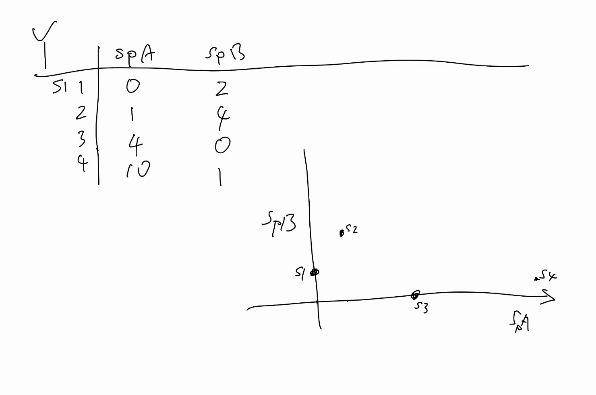 Y spA spB
S1 1 0 2
2 1 4
3 4 0
4 10 1
SpB
S2
S1
S4
S3
SpA